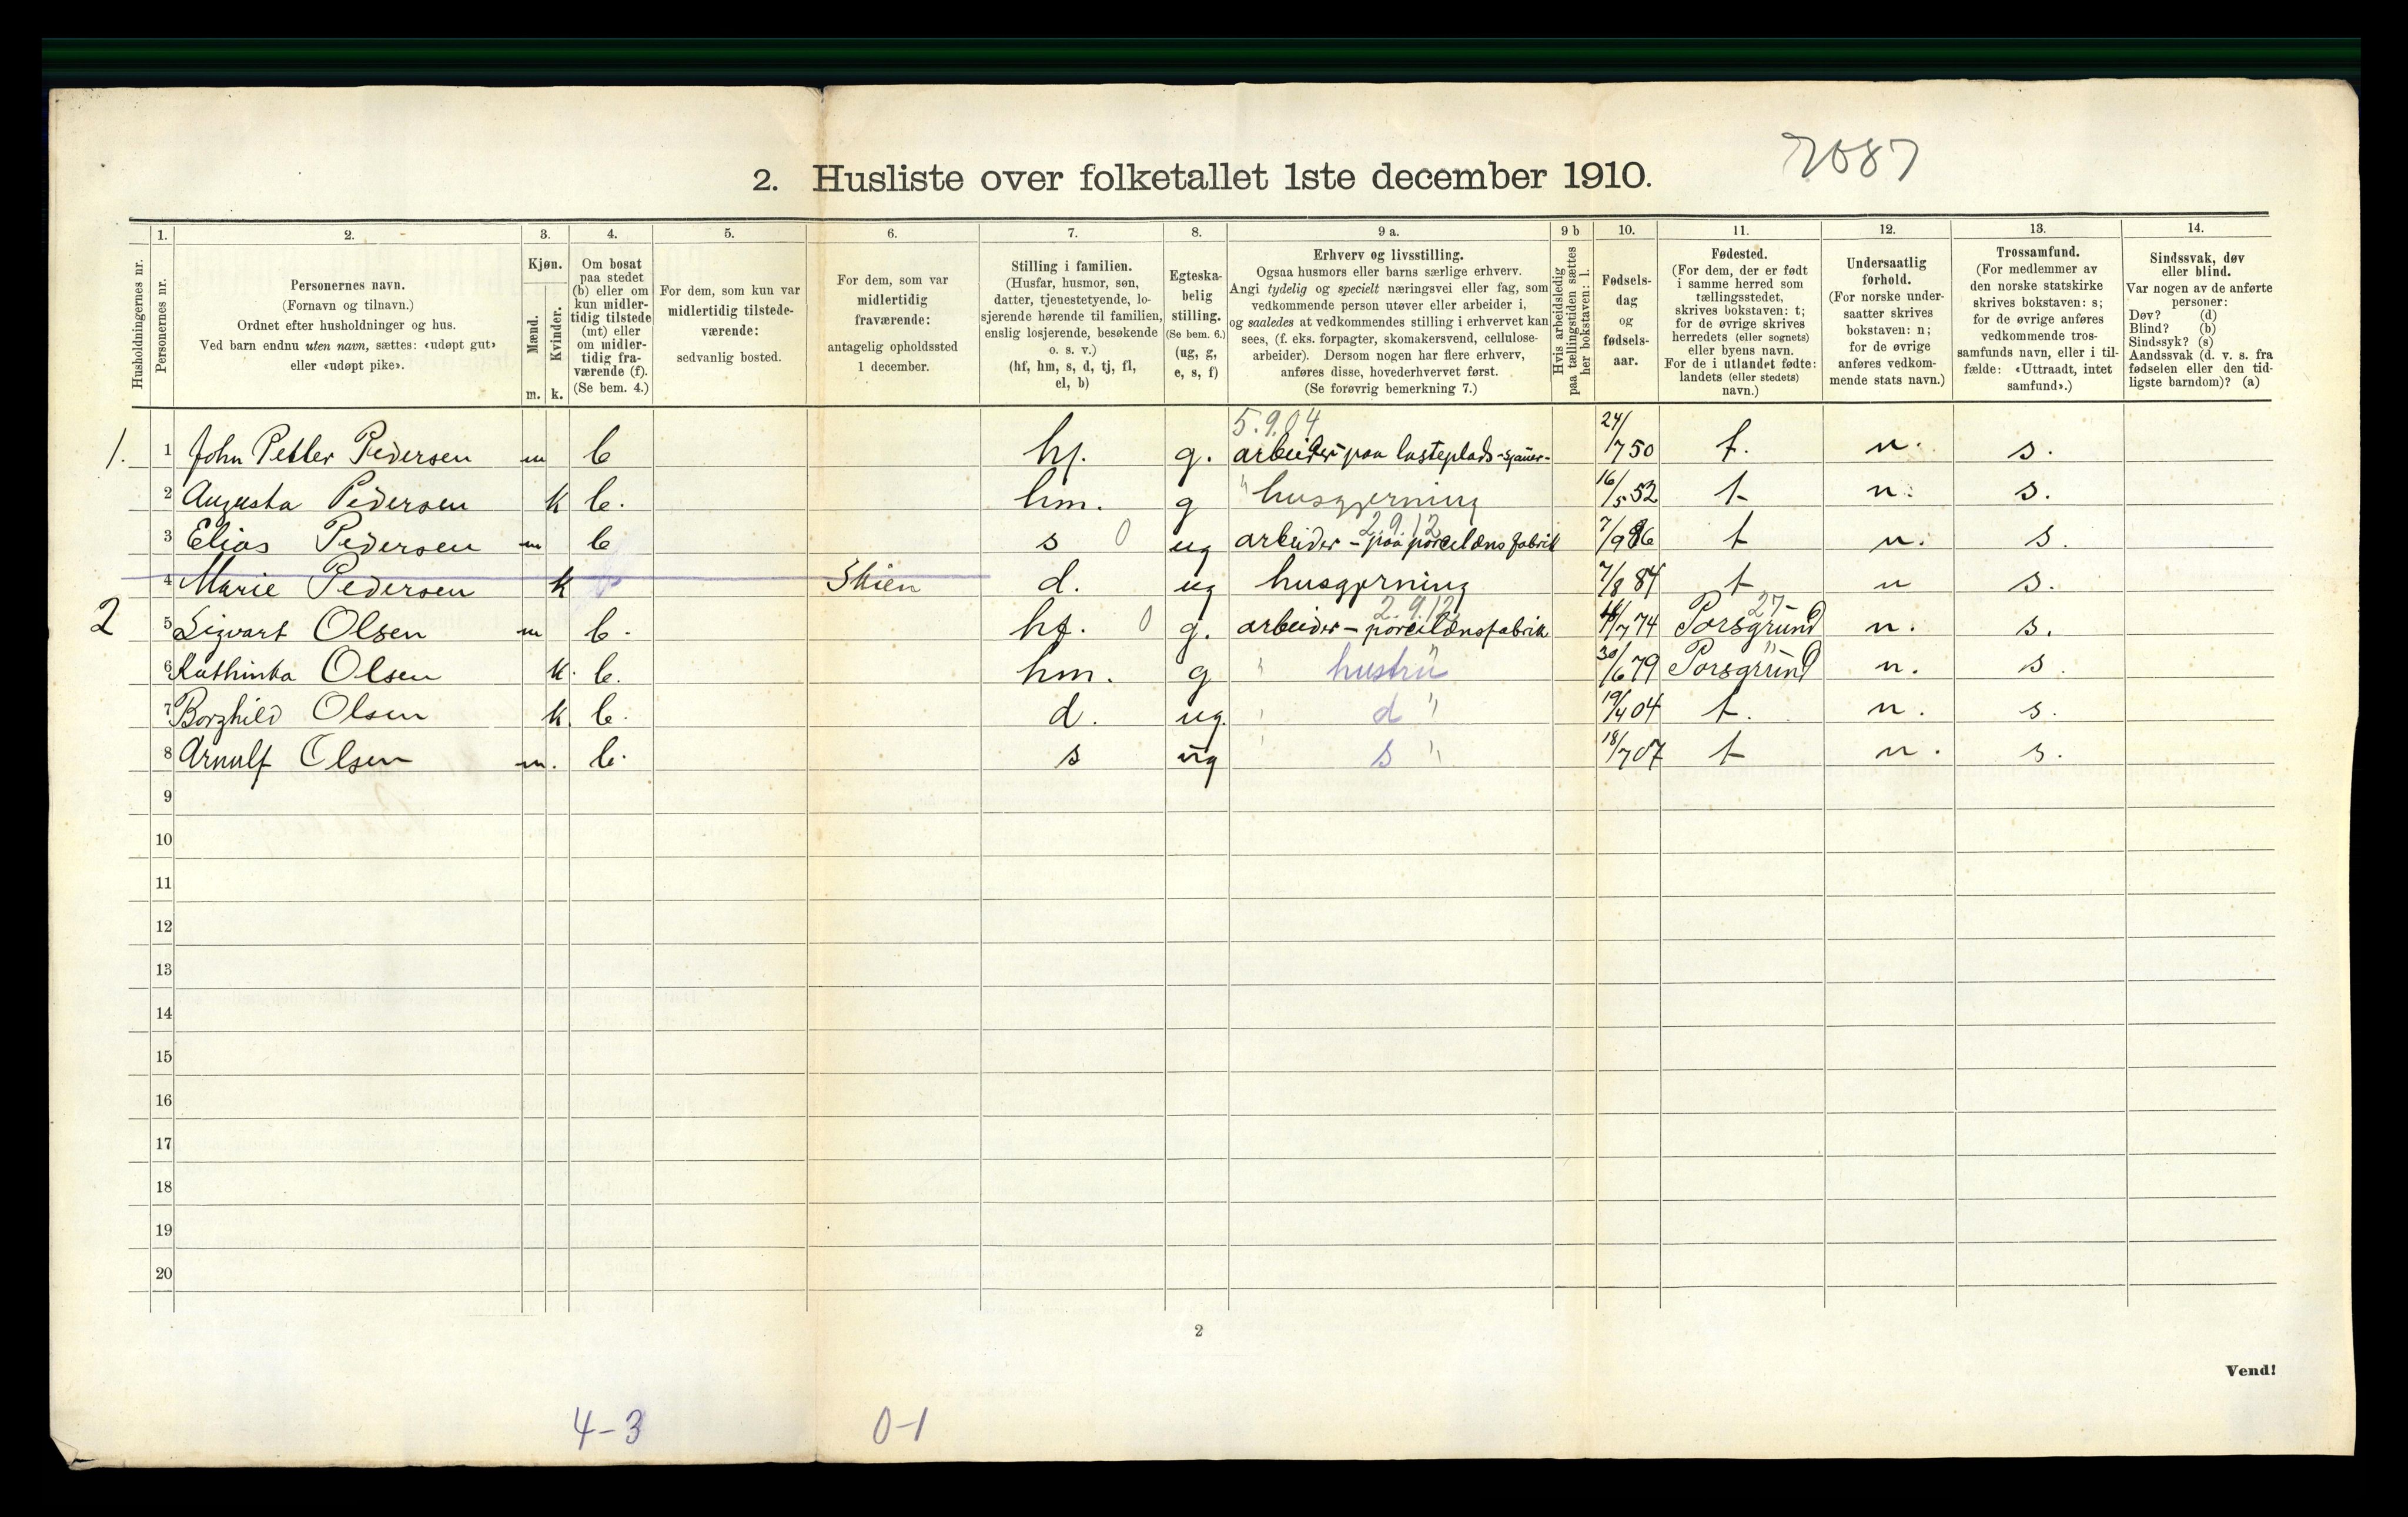 7087
2. Husliste over folketallet 1ste december 1910.
Husholdningernes nr.
1.
Personernes nr.
2.
Personernes navn.
(Fornavn og tilnavn.)
Ordnet efter husholdninger og hus.
Ved barn endnu uten navn, sættes: «udøpt gut»
eller «udøpt pike».
3.
Kjøn.
Mænd.
Kvinder.
m. k.
4.
Om bosat
paa stedet
(b) eller om
kun midler-
tidig tilstede
(mt) eller
om midler-
tidig fra-
værende (f).
(Se bem. 4.)
5.
For dem, som kun var
midlertidig tilstede-
værende:
sedvanlig bosted.
6.
For dem, som var
midlertidig
fraværende:
antagelig opholdssted
1 december.
7.
Stilling i familien.
(Husfar, husmor, søn,
datter, tjenestetyende, lo-
sjerende hørende til familien,
enslig losjerende, besøkende
o. s. v.)
(hf, hm, s, d, tj, fl,
el, b)
8.
Egteska-
belig
stilling.
(Se bem. 6.)
(ug, g,
e, s, f)
9 a.
Erhverv og livsstilling.
Ogsaa husmors eller barns særlige erhverv.
Angi tydelig og specielt næringsvei eller fag, som
vedkommende person utøver eller arbeider i,
og saaledes at vedkommendes stilling i erhvervet kan
sees, (f. eks. forpagter, skomakersvend, cellulose-
arbeider). Dersom nogen har flere erhverv,
anføres disse, hovederhvervet først.
(Se forøvrig bemerkning 7.)
9 b
Hvis arbeidsledig
paa tællingstiden sættes
her bokstaven: l.
10.
Fødsels-
dag
og
fødsels-
aar.
11.
Fødested.
(For dem, der er født
i samme herred som
tællingsstedet,
skrives bokstaven: t;
for de øvrige skrives
herredets (eller sognets)
eller byens navn.
For de i utlandet fødte:
landets (eller stedets)
navn.)
12.
Undersaatlig
forhold.
(For norske under-
saatter skrives
bokstaven: n;
for de øvrige
anføres vedkom-
mende stats navn.)
13.
Trossamfund.
(For medlemmer av
den norske statskirke
skrives bokstaven: s;
for de øvrige anføres
vedkommende tros-
samfunds navn, eller i til-
fælde: «Uttraadt, intet
samfund».)
14.
Sindssvak, døv
eller blind.
Var nogen av de anførte
personer:
Døv? (d)
Blind? (b)
Sindssyk? (s)
Aandssvak (d. v. s. fra
fødselen eller den tid-
ligste barndom)? (a)
5.9.04
1. 1 John Petter Pedersen m b hf. g. arbeider paa lasteplads -sjauer- 24/7 50 t. n. s.
2 Augusta Pedersen k b. hm. g " husgjerning 16/5 52 t n. s.
2.9.12
3 Elias Pedersen m b s 0 ug arbeider - paa porcelænsfabrik 7/9 86 t n. s.
4 Marie Pedersen k Skien d. ug husgjerning 7/8 84 t n s.
2.9.12 27-
2 5 Sigvart Olsen m b. hf. 0 g. arbeider - porcelænsfabrik /7 74 Porsgrund n. s.
6 Kathinka Olsen k. b. hm. g " hustru " 30/6 79 Porsgrund " n. s.
7 Borghild Olsen k. b. d. ug. " d " 19/4 04 t. n. s.
8 Arnulf Olsen m. b. s ug " s " 18/7 07 t n. s.
9
10
11
12
13
14
15
16
17
18
19
20
2
Vend!
4-3 0-1